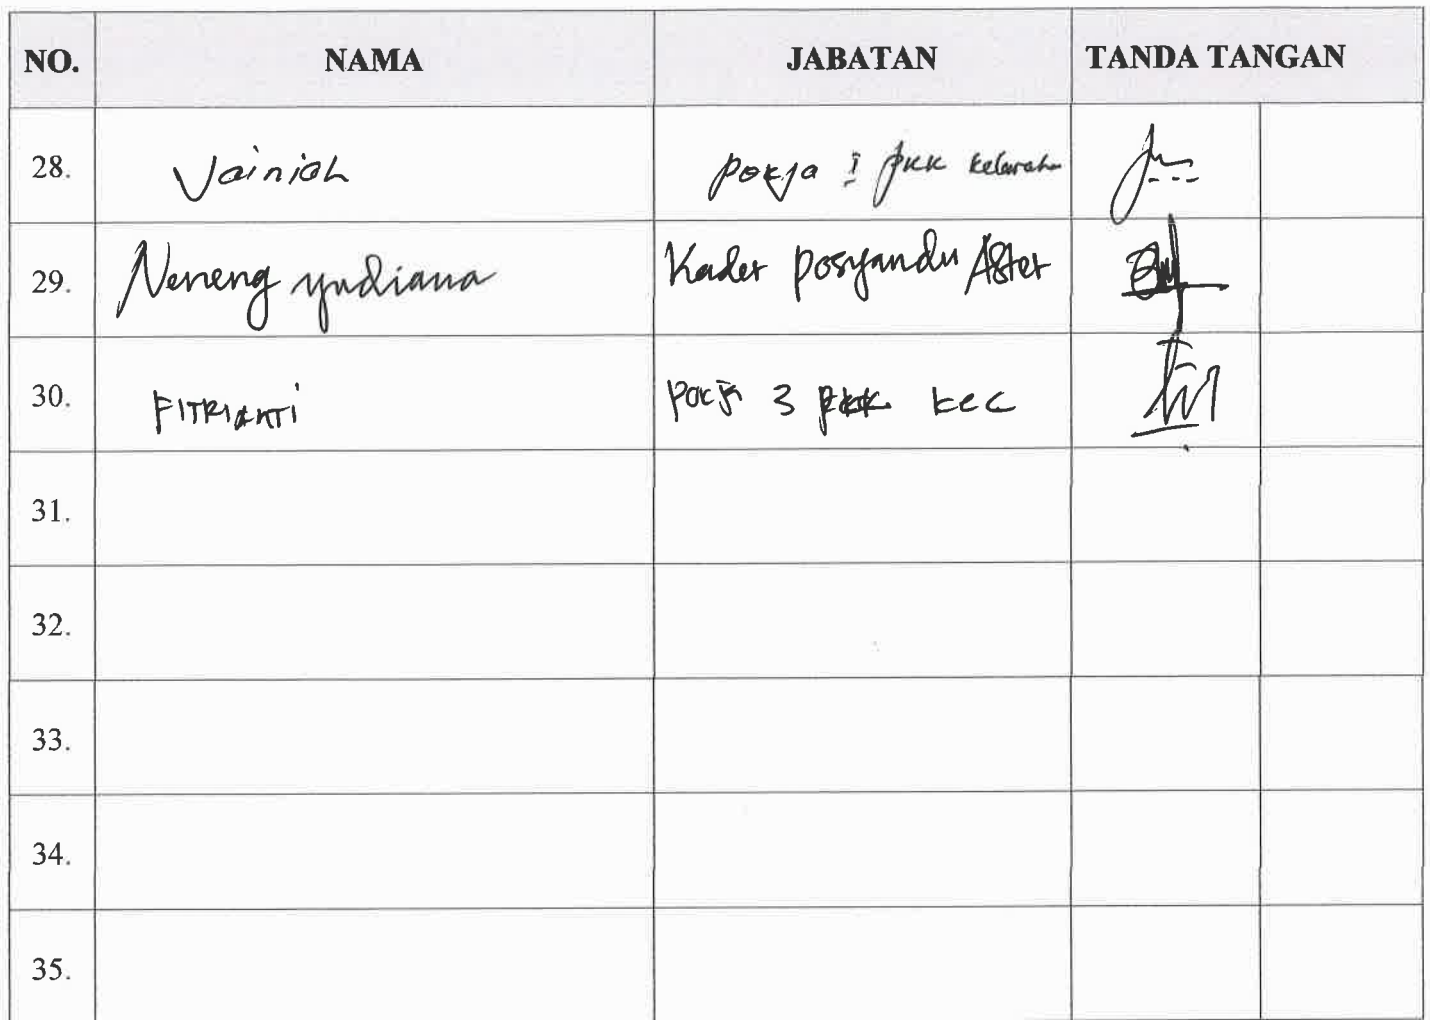 NO. NAMA JABATAN TANDA TANGAN
28. Jainiah pokja I pkk kelurahan
29. Neneng yudiana Kader posyandu Aster
30. FITRIANTI pokja 3 pkk kec
31.
32.
33.
34.
35.